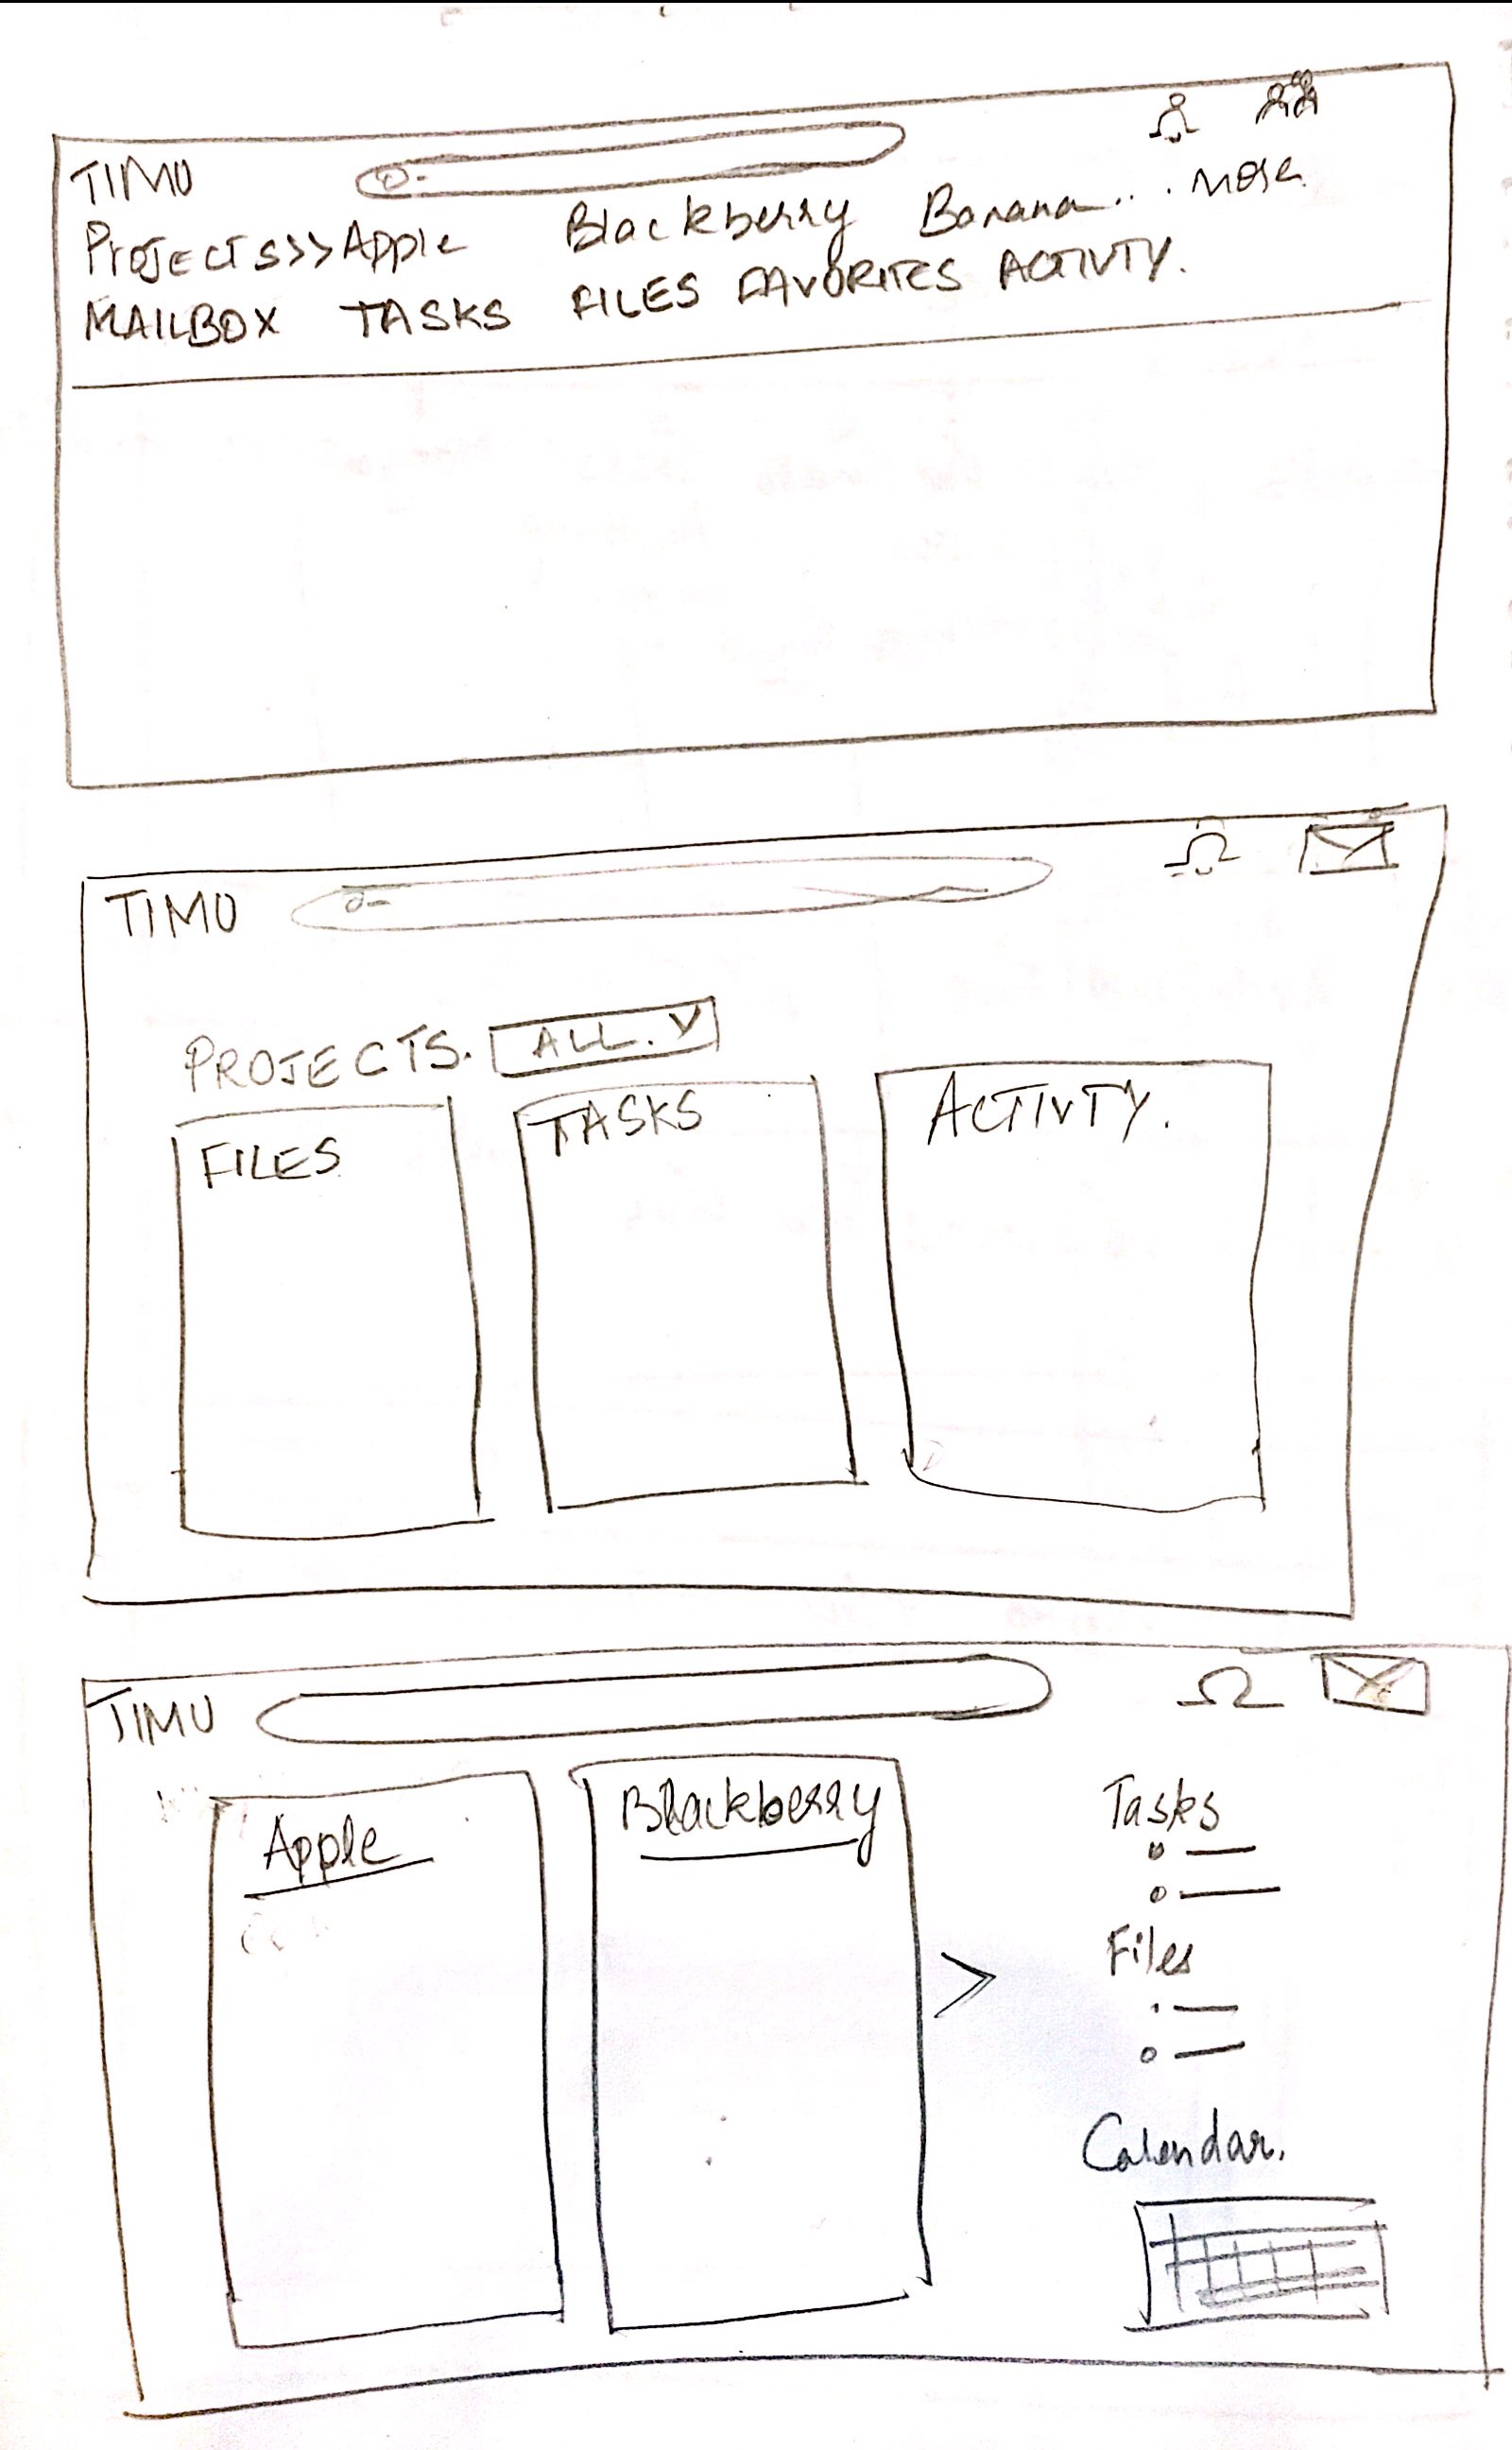 TIMU
Projects>>Apple Blackberry Banana... More
MAILBOX TASKS FILES FAVORITES ACTIVTY.
TIMU
PROJECTS. ALL. V
FILES TASKS ACTIVTY.
TIMU
Apple Blackberry
>
Tasks
Files
Calendar.